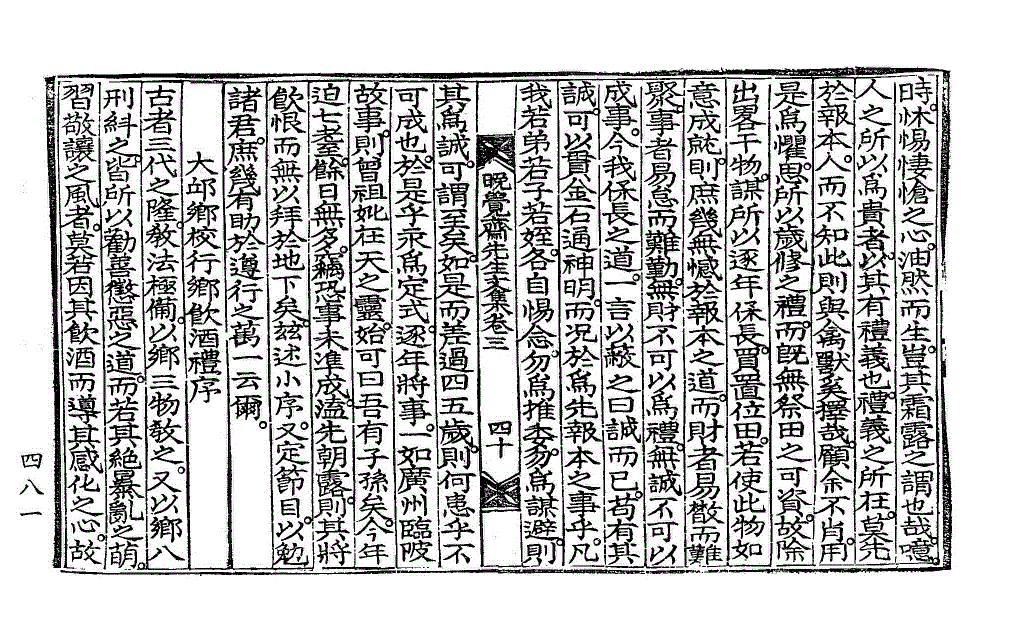 時。怵惕悽愴之心。油然而生。豈其霜露之謂也哉。噫。
人之所以爲貴者。以其有禮義也。禮義之所在。莫先
於報本。人而不知此。則與禽獸奚擇哉。顧余不肖。用
是爲懼。思所以歲修之禮。而旣無祭田之可資。故除
出畧干物。謀所以逐年係長。買置位田。若使此物如
意成就。則庶幾無憾於報本之道。而財者易散而難
聚。事者易怠而難勤。無財不可以爲禮。無誠不可以
成事。今我係長之道。一言以蔽之曰誠而已。苟有其
誠。可以貫金石通神明。而况於爲先報本之事乎。凡
我若弟若子若姪。各自惕念。勿爲推委。勿爲謀避。則
晩覺齋先生文集卷三
四十
其爲誠。可謂至矣。如是而差過四五歲。則何患乎不
可成也。於是乎永爲定式。逐年將事。一如廣州臨陂
故事。則曾祖妣在天之靈。始可曰吾有子孫矣。今年
迫七耋。餘日無多。竊恐事未準成。溘先朝露。則其將
飮恨而無以拜於地下矣。玆述小序。又定節目。以勉
諸君。庶幾有助於遵行之萬一云爾。
大邱鄕校行鄕飮酒禮序
古者三代之隆。敎法極備。以鄕三物敎之。又以鄕八
刑糾之。皆所以勸善懲惡之道。而若其絶暴亂之萌。
習敬讓之風者。莫若因其飮酒而導其感化之心。故
四八一